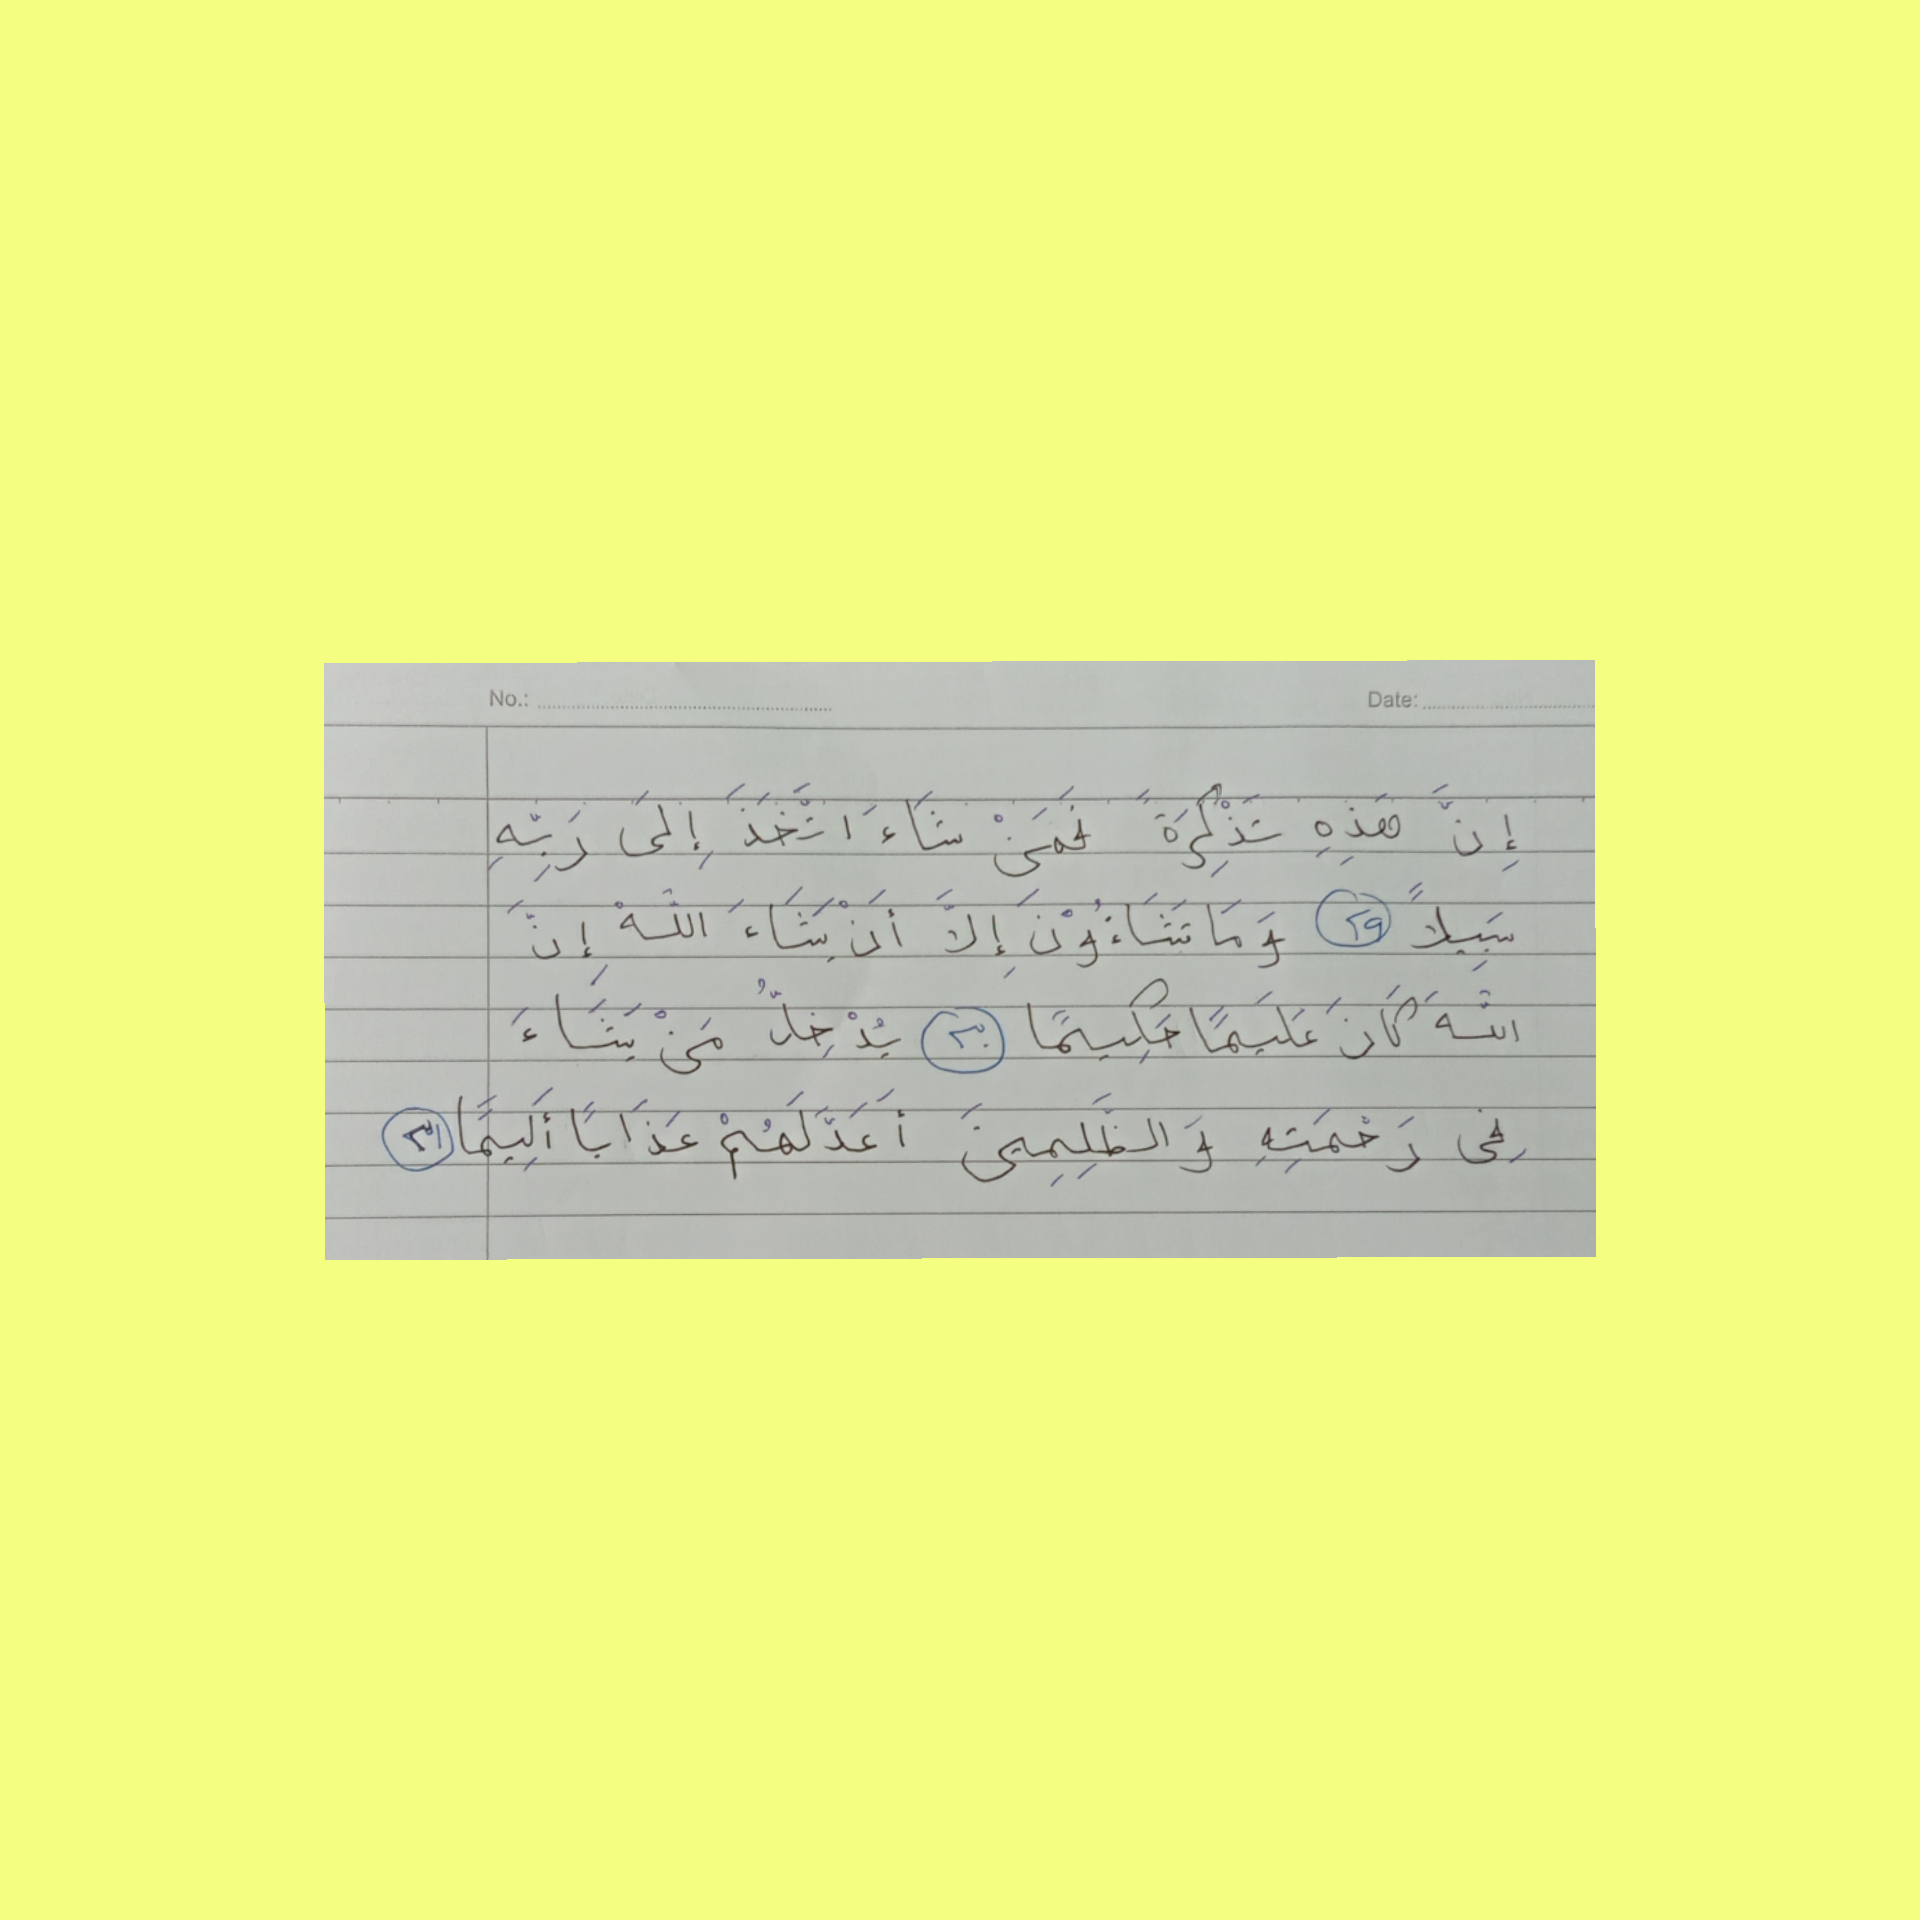 No.: Date:
إِنَّ هَذِهِ تَذْكِرَةً فَمَنْ شَاءَ اتَّخَذَ إِلَىَ رَبِّهِ
سَبِيلاً ٢٩ وَمَا تَشَاءُوْنَ إِلاَّ أَنْ يَشَاءَ اللَّهْ إِنَّ
اللَّهَ كَانَ عَلَيمًا حَكِيمًا ٣٠ يُدْخِلُّ مَنْ يَشَاءَ
فِى رَحْمَتِهِ وَالظَّلِمِينَ أَعَدَّلَهُمْ عَذَابًا أَلِيمًا ٣١